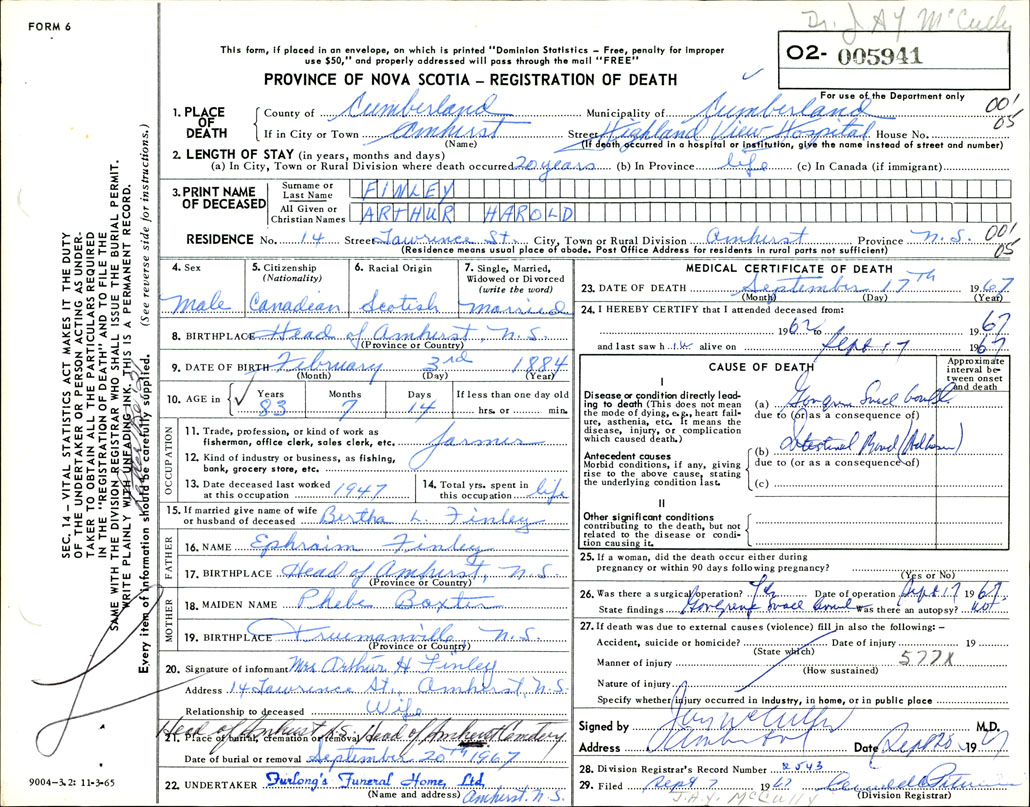 FORM 6
Dr. J A Y McCully
O2- 005941
For use of the Department only
This form, if placed in an envelope, on which is printed "Dominion Statistics – Free, penalty for improper
use $50," and properly addressed will pass through the mail "FREE"
PROVINCE OF NOVA SCOTIA – REGISTRATION OF DEATH
SEC. 14 – VITAL STATISTICS ACT MAKES IT THE DUTY
OF THE UNDERTAKER OR PERSON ACTING AS UNDER-
TAKER TO OBTAIN ALL THE PARTICULARS REQUIRED
IN THE "REGISTRATION OF DEATH" AND TO FILE THE
SAME WITH THE DIVISION REGISTRAR WHO SHALL ISSUE THE BURIAL PERMIT.
WRITE PLAINLY WITH UNFADING INK. THIS IS A PERMANENT RECORD.
Every item of information should be carefully supplied. (See reverse side for instructions.)
1. PLACE OF DEATH
County of Cumberland Municipality of Cumberland 001
05
If in City or Town Amhurst Street Highland View Hospital House No.
(Name) (If death occurred in a hospital or institution, give the name instead of street and number)
2. LENGTH OF STAY (in years, months and days)
(a) In City, Town or Rural Division where death occurred 20 years (b) In Province life (c) In Canada (if immigrant)
3. PRINT NAME OF DECEASED
Surname or Last Name FINLEY
All Given or Christian Names ARTHUR HAROLD
RESIDENCE No. 14 Street Lawrence St. City, Town or Rural Division Amhurst Province N.S. 001
05
(Residence means usual place of abode. Post Office Address for residents in rural parts not sufficient)
4. Sex Male
5. Citizenship (Nationality) Canadean
6. Racial Origin Scotish
7. Single, Married, Widowed or Divorced (write the word) Married
8. BIRTHPLACE Head of Amhurst, N.S.
(Province or Country)
9. DATE OF BIRTH February 3rd 1884
(Month) (Day) (Year)
10. AGE in Years 83 Months 7 Days 14 If less than one day old
hrs. or min.
OCCUPATION
11. Trade, profession, or kind of work as
fisherman, office clerk, sales clerk, etc. farmer
12. Kind of industry or business, as fishing,
bank, grocery store, etc.
13. Date deceased last worked at this occupation 1947
14. Total yrs. spent in this occupation life
15. If married give name of wife
or husband of deceased Bertha L. Finley
FATHER
16. NAME Ephraim Finley
17. BIRTHPLACE Head of Amhurst, N.S.
(Province or Country)
MOTHER
18. MAIDEN NAME Phebe Baxter
19. BIRTHPLACE Truemanville N.S.
(Province or Country)
20. Signature of informant Mrs Arthur H Finley
Address 14 Lawrence St., Amhurst, N.S.
Relationship to deceased Wife
Head of Amhurst N.S. Head of Amhurst Cemetery
21. Place of burial, cremation or removal
Date of burial or removal September 20th 1967
22. UNDERTAKER Furlong's Funeral Home, Ltd.
(Name and address) Amhurst. N.S.
9004-3.2: 11-3-65
MEDICAL CERTIFICATE OF DEATH
23. DATE OF DEATH September 17TH 1967
(Month) (Day) (Year)
24. I HEREBY CERTIFY that I attended deceased from:
1962 to 1967
and last saw him alive on Sept 17 1967
CAUSE OF DEATH
Approximate interval between onset and death
I
Disease or condition directly leading to death (This does not mean the mode of dying, e.g., heart failure, asthenia, etc. It means the disease, injury, or complication which caused death.)
(a)
due to (or as a consequence of)
Antecedent causes
Morbid conditions, if any, giving rise to the above cause, stating the underlying condition last.
(b) Intestinal Band (Adhesion)
due to (or as a consequence of)
(c)
II
Other significant conditions
contributing to the death, but not related to the disease or condition causing it.
25. If a woman, did the death occur either during
pregnancy or within 90 days following pregnancy?
(Yes or No)
26. Was there a surgical operation? Yes Date of operation Sept 17 1967
State findings Was there an autopsy? not
27. If death was due to external causes (violence) fill in also the following: –
Accident, suicide or homicide? Date of injury 19
(State which)
Manner of injury 577X
(How sustained)
Nature of injury
Specify whether injury occurred in Industry, in home, or in public place
Signed by Jay McCully M.D.
Address Amherst Date Sept 20 1967
28. Division Registrar's Record Number 2543
29. Filed Sept 1967
(Division Registrar)
J.A.Y. McCULLY